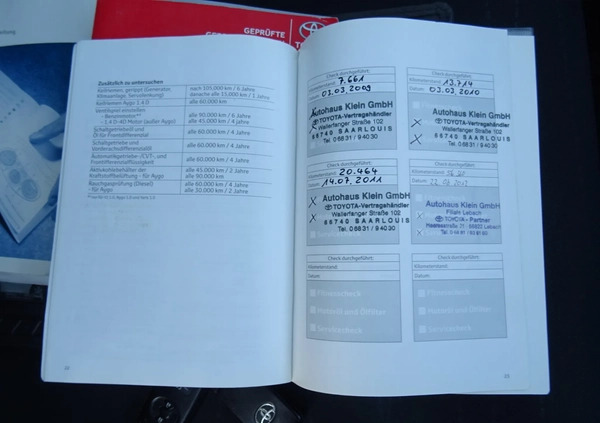 GEPRÜFTE
Zusätzlich zu untersuchen
Keilriemen, gerippt (Generator, Klimaanlage, Servolenkung) nach 105.000 km / 6 Jahre
danache alle 15.000 km / 1 Jahr
Keilriemen Aygo 1.4 D alle 60.000 km
Ventilspiel einstellen
- Benzinmotor** alle 90.000 km / 6 Jahre
- 1.4 D-4D Motor (außer Aygo) alle 45.000 km / 4 Jahre
Schaltgetriebeöl und
Öl für Frontdifferenzial alle 60.000 km / 4 Jahre
Schaltgetriebe und
Vorderachsdifferenzialöl alle 60.000 km / 4 Jahre
Automatikgetriebe-/CVT-, und
Frontdifferenzialflüssigkeit alle 90.000 km / 6 Jahre
Aktivkohlebehälter der alle 45.000 km / 2 Jahre
Kraftstoffbelüftung - für Aygo alle 90.000 km
Rauchgasprüfung (Diesel) alle 60.000 km / 4 Jahre
- für Aygo alle 30.000 km / 2 Jahre
Check durchgeführt:
Kilometerstand: 7.661
Datum: 03.03.2009
Autohaus Klein GmbH
TOYOTA-Vertragshändler
Wallerfanger Straße 102
66740 SAARLOUIS
Tel. 0 68 31 / 9 40 30
Check durchgeführt:
Kilometerstand: 13.714
Datum: 03.03.2010
Autohaus Klein GmbH
TOYOTA-Vertragshändler
Wallerfanger Straße 102
66740 SAARLOUIS
Tel. 0 68 31 / 9 40 30
Check durchgeführt:
Kilometerstand: 20.464
Datum: 14.07.2011
Autohaus Klein GmbH
TOYOTA-Vertragshändler
Wallerfanger Straße 102
66740 SAARLOUIS
Tel. 0 68 31 / 9 40 30
Check durchgeführt:
Kilometerstand:
Datum:
Autohaus Klein GmbH
Filiale Lebach
TOYOTA - Partner
66822 Lebach
Check durchgeführt:
Kilometerstand:
Datum:
Fitnesscheck
Motoröl und Ölfilter
Servicecheck
Check durchgeführt:
Kilometerstand:
Datum:
Fitnesscheck
Motoröl und Ölfilter
Servicecheck